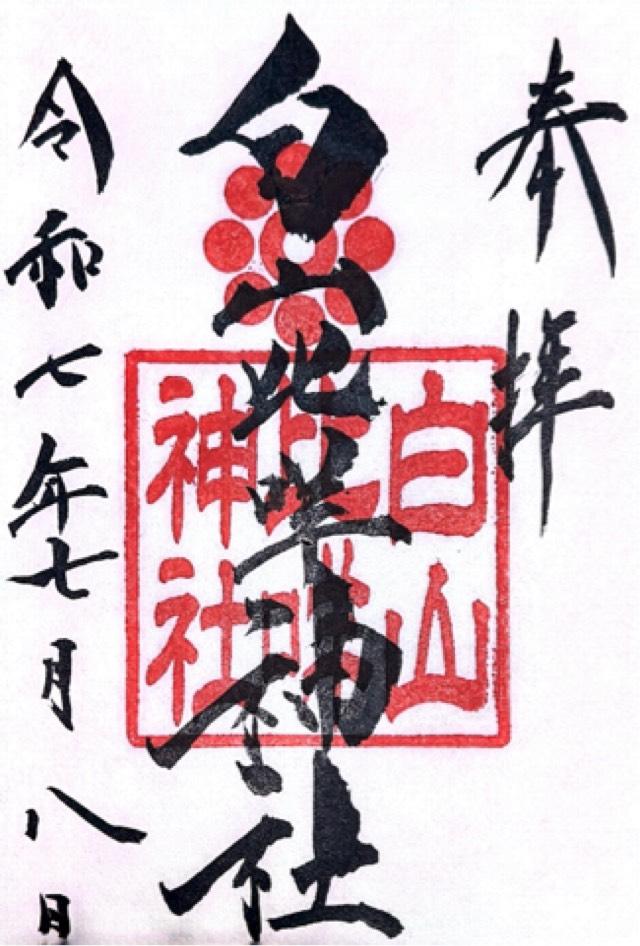 奉拝
白山比咩神社
白山
比咩
神社
令和七年七月八日